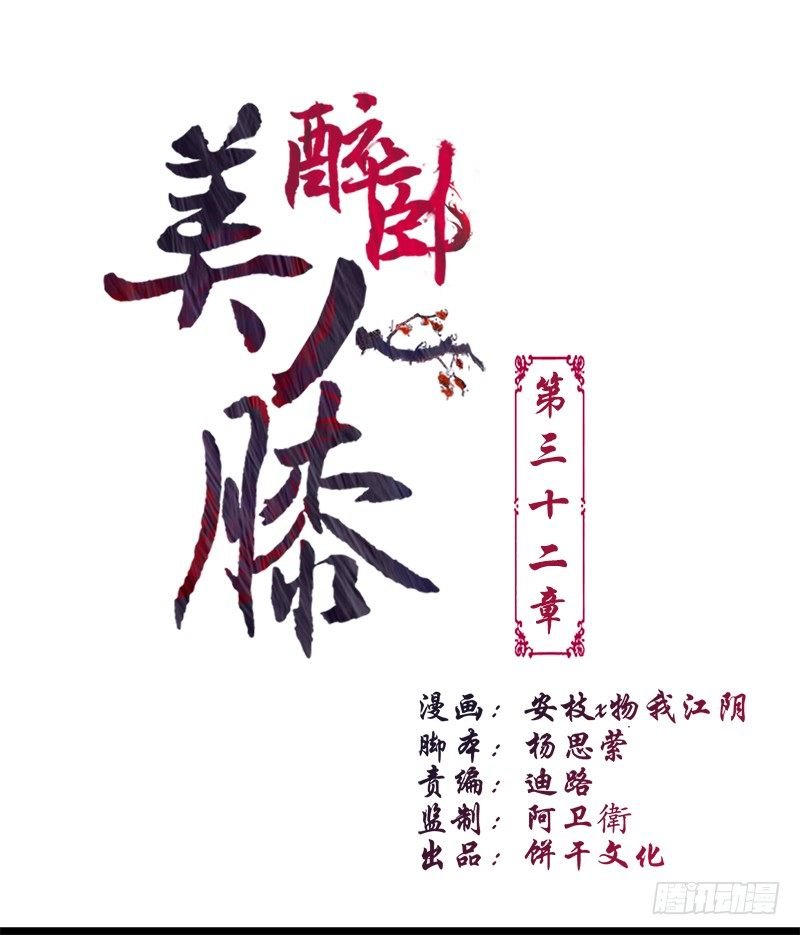 醉卧
美人膝
第三十二章
漫画：安枝x物我江阴
脚本：杨思萦
责编：迪路
监制：阿卫衛
出品：饼干文化
腾讯动漫